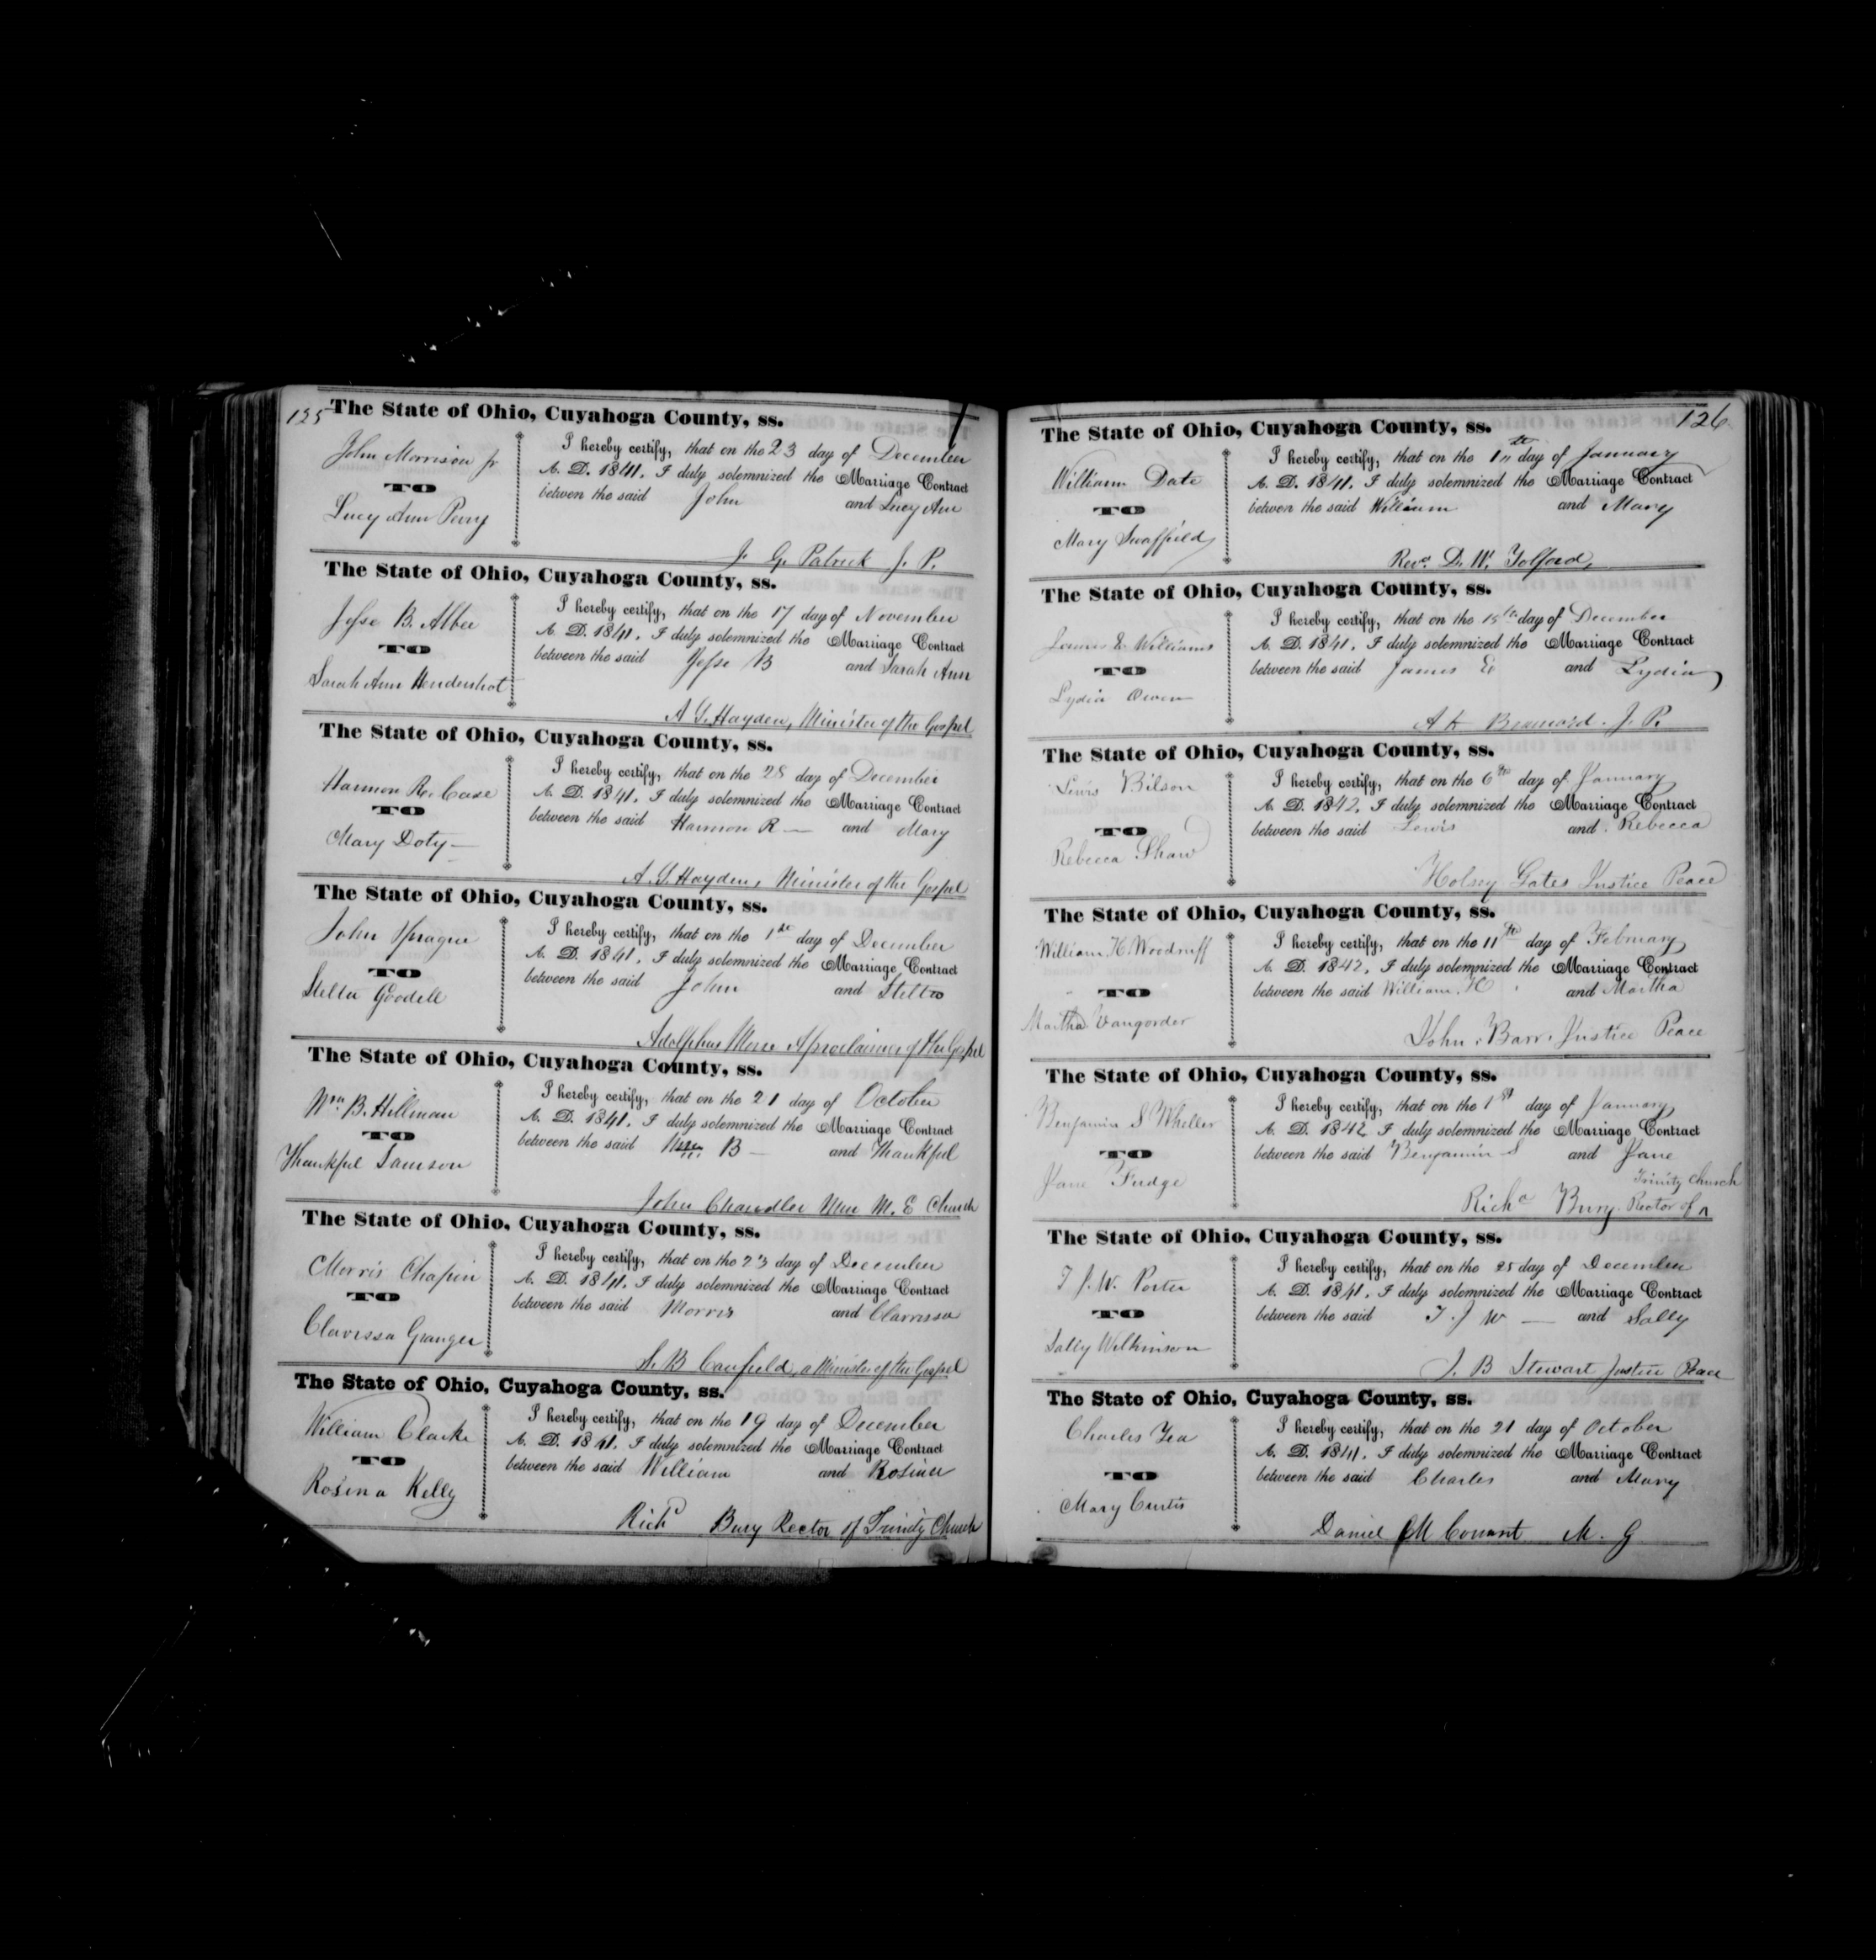 125
The State of Ohio, Cuyahoga County, ss.
John Morrison jr
TO
Lucy Ann Perry
I hereby certify, that on the 23 day of December
A. D. 1841, I duly solemnized the Marriage Contract
between the said John and Lucy Ann
J. G. Patrick J. P.
The State of Ohio, Cuyahoga County, ss.
Jesse B. Alber
TO
Sarah Ann Hendershot
I hereby certify, that on the 17 day of November
A. D. 1841, I duly solemnized the Marriage Contract
between the said Jesse B and Sarah Ann
A. S. Hayden, Minister of the Gospel
The State of Ohio, Cuyahoga County, ss.
Harmon R. Case
TO
Mary Doty
I hereby certify, that on the 28 day of December
A. D. 1841, I duly solemnized the Marriage Contract
between the said Harmon R and Mary
A. S. Hayden, Minister of the Gospel
The State of Ohio, Cuyahoga County, ss.
John Sprague
TO
Stella Goodell
I hereby certify, that on the 1st day of December
A. D. 1841, I duly solemnized the Marriage Contract
between the said John and Stella
Adolphus A proclaimer of the Gospel
The State of Ohio, Cuyahoga County, ss.
Wm B. Hillman
TO
Thankful Samson
I hereby certify, that on the 21 day of October
A. D. 1841, I duly solemnized the Marriage Contract
between the said Wm B and Thankful
John Chandler Min M. E Church
The State of Ohio, Cuyahoga County, ss.
Morris Chapin
TO
Clarissa Granger
I hereby certify, that on the 23 day of December
A. D. 1841, I duly solemnized the Marriage Contract
between the said Morris and Clarrissa
S. B Canfield, a Minister of the Gospel
The State of Ohio, Cuyahoga County, ss.
William Clarke
TO
Rosina Kelly
I hereby certify, that on the 19 day of December
A. D. 1841, I duly solemnized the Marriage Contract
between the said William and Rosina
Richd Bury Rector of Trinity Church
126
The State of Ohio, Cuyahoga County, ss.
William Date
TO
Mary Swaffield
I hereby certify, that on the 1st day of January
A. D. 1841, I duly solemnized the Marriage Contract
between the said William and Mary
Revd. D. W. Tolford
The State of Ohio, Cuyahoga County, ss.
James E Williams
TO
Lydia Owen
I hereby certify, that on the 15th day of December
A. D. 1841, I duly solemnized the Marriage Contract
between the said James E and Lydia
A K Beamard. J. P.
The State of Ohio, Cuyahoga County, ss.
Lewis Bilson
TO
Rebecca Shaw
I hereby certify, that on the 6th day of January
A. D. 1842, I duly solemnized the Marriage Contract
between the said Lewis and Rebecca
Holsey Gates Justice Peace
The State of Ohio, Cuyahoga County, ss.
William H Woodruff
TO
Martha Vangorder
I hereby certify, that on the 11th day of February
A. D. 1842, I duly solemnized the Marriage Contract
between the said William. H and Martha
John Barr Justice Peace
The State of Ohio, Cuyahoga County, ss.
Benjamin S Wheller
TO
Jane Fudge
I hereby certify, that on the 1st day of January
A. D. 1842 I duly solemnized the Marriage Contract
between the said Benjamin S and Jane
Trinity Church
Richd Bury. Rector of ^
The State of Ohio, Cuyahoga County, ss.
T J. W. Porter
TO
Sally Wilkinson
I hereby certify, that on the 25 day of December
A. D. 1841, I duly solemnized the Marriage Contract
between the said T. J W and Sally
J. B Stewart Justice Peace
The State of Ohio, Cuyahoga County, ss.
Charles Yea
TO
Mary Curtis
I hereby certify, that on the 21 day of October
A. D. 1841, I duly solemnized the Marriage Contract
between the said Charles and Mary
Daniel M Conant M. G